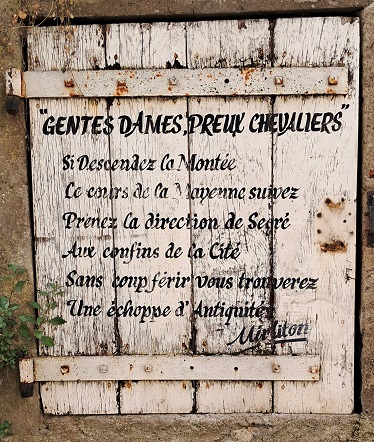 "GENTES DAMES, PREUX CHEVALIERS"
Si Descendez la Montée
Le cours de la Mayenne suivez
Prenez la direction de Segré
Aux confins de la Cité
Sans coup férir vous trouverez
Une échoppe d'Antiquités
Mirliton